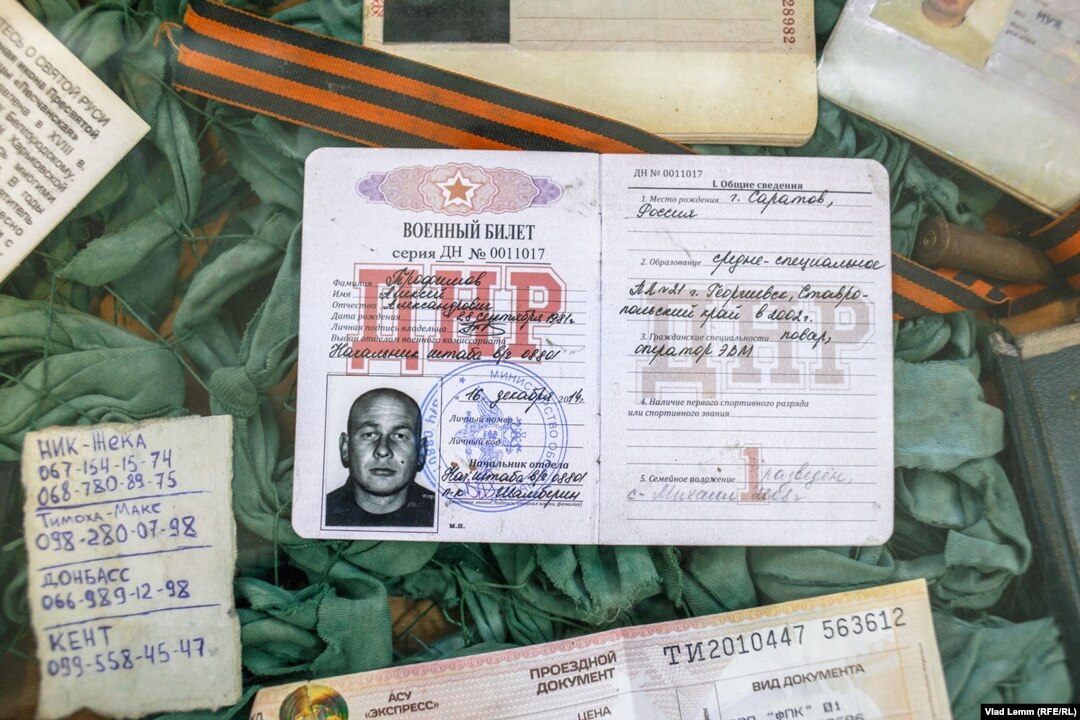 ТЕСЬ О СВЯТОЙ РУСИ
икона Пресвятой
«Песчанская»
явлена в XVIII в.
Белгородскому.
Харьковской
многими
В годы
28982
МУЖ
ВОЕННЫЙ БИЛЕТ
серия ДН № 0011017
ДНР
Фамилия Трофимов
Имя Алексей
Отчество Александрович
Дата рождения 28 сентября 1981г.
Личная подпись владельца
Выдан отделом военного комиссариата
Начальник штаба в/ч 08801
МИНИСТЕРСТВО ОБ
16 декабря 2014г.
Личный номер
Личный код
Начальник отдела
Нач. штаба в/ч 08801
п-к Шамберин
М.П.
ДН № 0011017
I. Общие сведения
1. Место рождения г. Саратов,
Россия
2. Образование средне-специальное
г. Георгиевск, Ставро-
польский край в 2002г.
3. Гражданские специальности повар,
оператор ЭВМ
ДНР
4. Наличие первого спортивного разряда
или спортивного звания
5. Семейное положение разведен,
с-Михаил
1
НИК-ЖЕКА
067-154-15-74
068-780-89-75
Тимоха-Макс
098-280-07-98
ДОНБАСС
066-989-12-98
КЕНТ
099-558-45-47
ТИ2010447 563612
ПРОЕЗДНОЙ
ДОКУМЕНТ
АСУ
"ЭКСПРЕСС"
ЦЕНА
ВИД ДОКУМЕНТА
"ФПК" 01
Vlad Lemm (RFE/RL)